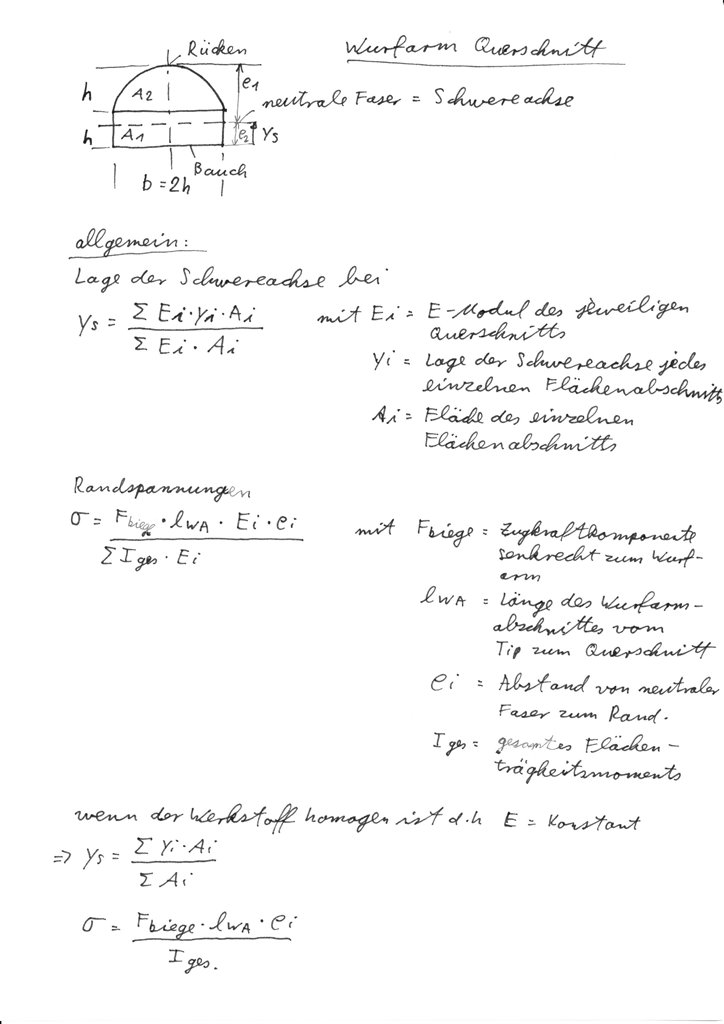 Wurfarm Querschnitt
Rücken
h
A2
e1
neutrale Faser = Schwereachse
h
A1
e2
ys
Bauch
b = 2h
allgemein:
Lage der Schwereachse bei
ys = Σ Ei · yi · Ai / Σ Ei · Ai
mit Ei = E-Modul des jeweiligen
Querschnitts
yi = Lage der Schwereachse jedes
einzelnen Flächenabschnitts
Ai = Fläche des einzelnen
Flächenabschnitts
Randspannungen
σ = Fbiege · lWA · Ei · ei / Σ Iges · Ei
mit Fbiege = Zugkraftkomponente
senkrecht zum Wurf-
arm
lWA = Länge des Wurfarm-
abschnittes vom
Tip zum Querschnitt
ei = Abstand von neutraler
Faser zum Rand.
Iges = gesamtes Flächen-
trägheitsmoments
wenn der Werkstoff homogen ist d.h E = Konstant
=> ys = Σ Yi · Ai / Σ Ai
σ = Fbiege · lWA · ei / Iges.